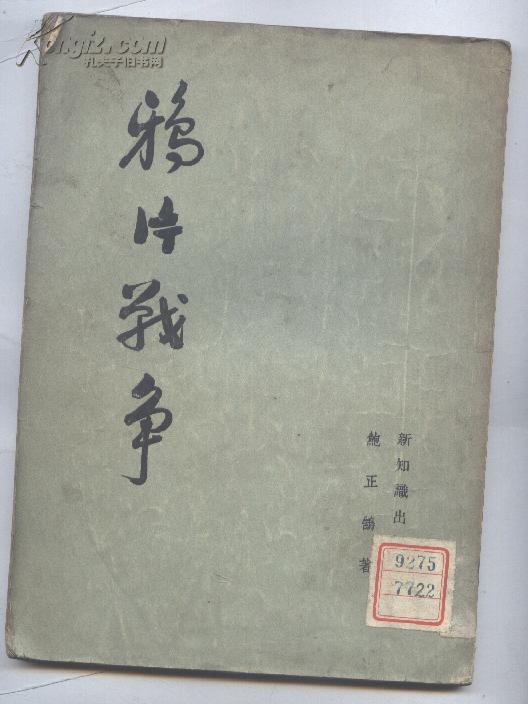 Kongfz.com
孔夫子旧书网
鴉片戰争
新知識出
鮑正鵠著
9275
7722